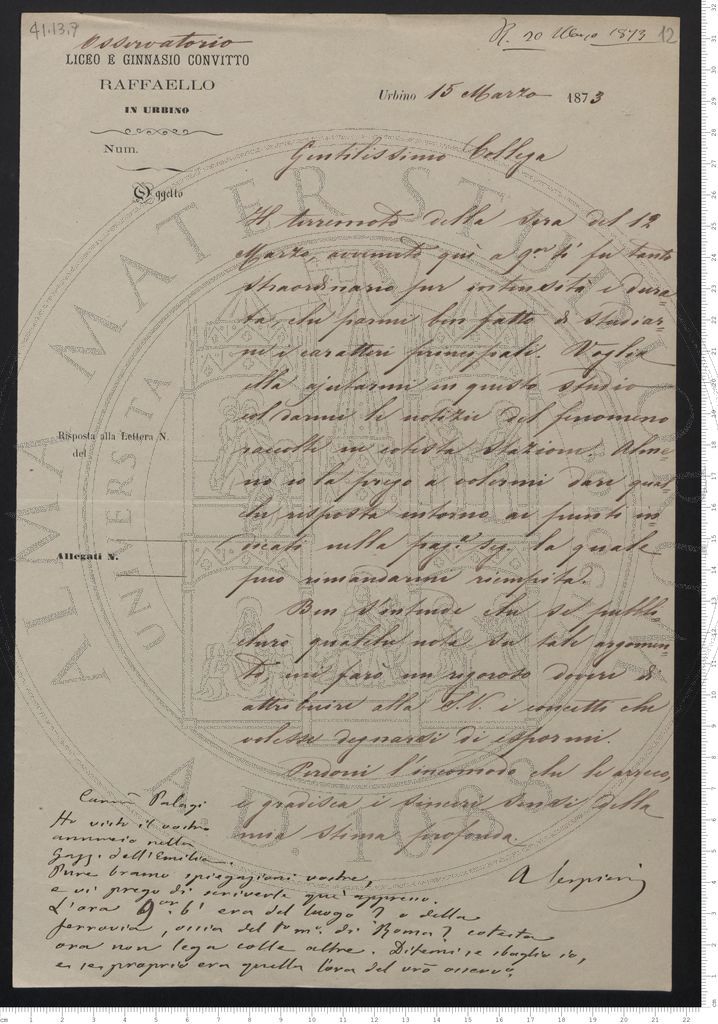 41.13.9
R. 20 Marzo 1873
12
Osservatorio
LICEO E GINNASIO CONVITTO
RAFFAELLO
IN URBINO
Num.
Oggetto
Urbino 15 Marzo 1873
Gentilissimo Collega
Il terremoto della sera del 12
Marzo, avvenuto quì a 9 or. ti fu tanto
straordinario per intensità e dura-
ta, che parmi ben fatto di studiar-
ne i caratteri principali. Voglia
ella ajutarmi in questo studio
col darmi le notizie del fenomeno
raccolte in cotesta stazione. Alme-
no io la prego a volermi dare qual-
che risposta intorno ai punti in-
dicati nella pag.a seg. la quale
può rimandarmi riempita.
Ben s'intende che se pubbli-
cherò qualche nota su tale argomen-
to, mi farò un rigoroso dovere di
attribuire alla S.V. i concetti che
volesse degnarsi di espormi.
Perdoni l'incomodo che le arreco,
e gradisca i sinceri sensi della
mia stima profonda.
A Serpieri
Risposta alla Lettera N.
del
Allegati N.
Palagi
Ho visto il vostro
annunzio nella
Gazz. dell'Emilia.
Pure bramo spiegazioni vostre,
e vi prego di scriverle quì appreso.
L'ora 9 or. b' era del luogo? o della
ferrovia, ossia del t. m. di Roma? cotesta
ora non lega colle altre. Ditemi se sbaglio io,
e se proprio era quella l'ora del vro
ALMA MATER STUDIORUM
UNIVERSITA
A.D. 1088